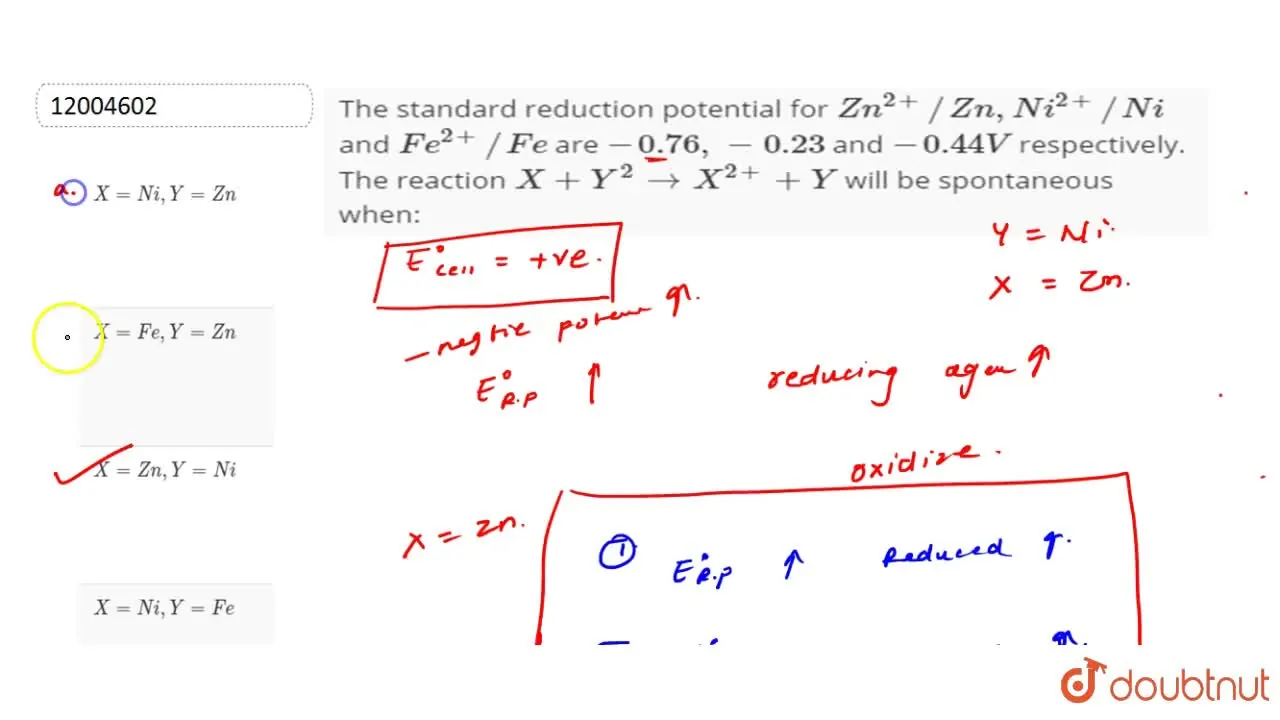 12004602
The standard reduction potential for Zn²⁺ / Zn, Ni²⁺ / Ni
and Fe²⁺ / Fe are −0.76, −0.23 and −0.44V respectively.
The reaction X + Y² → X²⁺ + Y will be spontaneous
when:
a. X = Ni, Y = Zn
X = Fe, Y = Zn
X = Zn, Y = Ni
X = Ni, Y = Fe
E°cell = +ve.
Y = Ni
X = Zn.
E°R.P ↑
reducing agen ↑
oxidize.
X = Zn.
① E°R.P ↑ Reduced ↑.
doubtnut